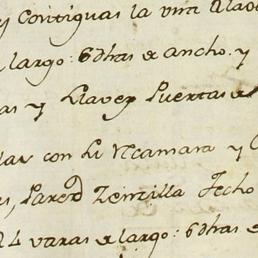 y Contiguas la una a la
largo: 6 dhas de ancho. y
as y Llaves Puertas de
lar con su Recamara y
Pared Zencilla Techo
24 varas de largo: 6 dhas de